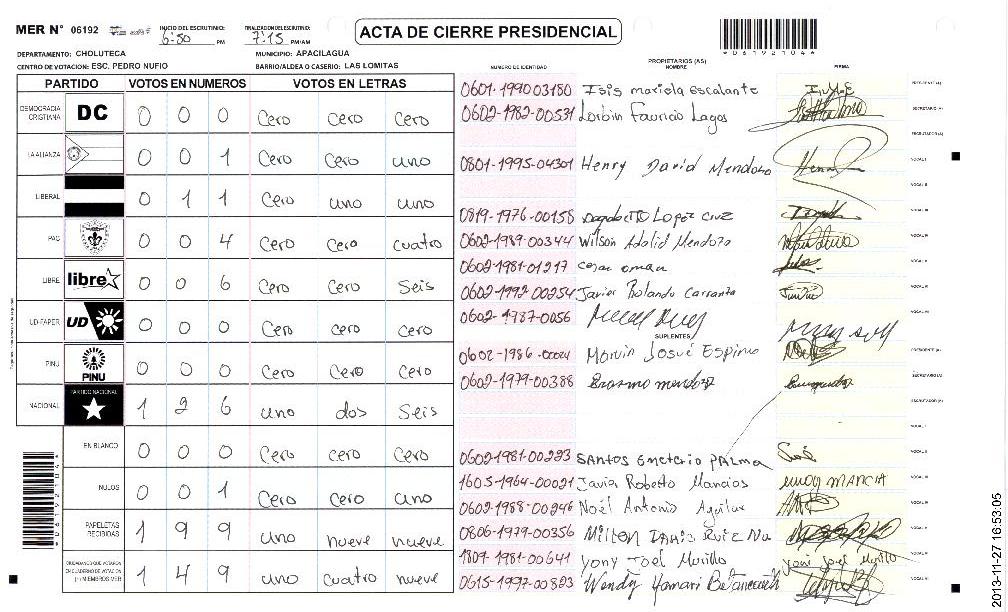 MER N° 06192 INICIO DEL ESCRUTINIO: 6:50 PM FINALIZACION ESCRUTINIO: 7:15 PM/AM
ACTA DE CIERRE PRESIDENCIAL
*06192104*
DEPARTAMENTO: CHOLUTECA MUNICIPIO: APACILAGUA
CENTRO DE VOTACION: ESC. PEDRO NUFIO BARRIO/ALDEA O CASERIO: LAS LOMITAS
PARTIDO VOTOS EN NUMEROS VOTOS EN LETRAS
DEMOCRACIA CRISTIANA DC 0 0 0 Cero Cero Cero
LA ALIANZA 0 0 1 Cero Cero uno
LIBERAL 0 1 1 Cero uno uno
PAC 0 0 4 Cero Cero cuatro
LIBRE libre 0 0 6 Cero Cero Seis
UD-FAPER UD 0 0 0 Cero Cero Cero
PINU PINU 0 0 0 Cero Cero Cero
NACIONAL PARTIDO NACIONAL 1 2 6 uno dos Seis
EN BLANCO 0 0 0 Cero Cero Cero
NULOS 0 0 1 Cero Cero uno
PAPELETAS RECIBIDAS 1 9 9 uno nueve nueve
CIUDADANOS QUE VOTARON EN CUADERNO DE VOTACION (+) MIEMBROS MER 1 4 9 uno cuatro nueve
PROPIETARIOS (AS)
NUMERO DE IDENTIDAD NOMBRE FIRMA
0601-1990 03180 Isis mariela escalante PRESIDENTE (A)
0602-1982-00531 Lorbin Fauricio Lagos SECRETARIO (A)
ESCRUTADOR (A)
0801-1995-04301 Henry David Mendoza VOCAL I
VOCAL II
0819-1976-00158 Dagoberto Lopez Cruz VOCAL III
0602-1989-00344 Wilson Adolid Mendoza
0602-1981-01217 cesar oman
0602-1992-00254 Javier Rolando Carranza
0602-1987-0056
SUPLENTES
0602-1986-00021 Marvin Josué Espino PRESIDENTE (A)
0602-1979-00388 Erasmo mendoza SECRETARIO (A)
ESCRUTADOR (A)
0602-1981-00223 SANTOS EMETERIO PALMA
1605-1964-00021 Javier Roberto Mancias
0602-1988-00246 Noél Antonio Aguilar
0806-1979-00356
1807-1981-00641 yony Joel Murillo
0615-1997-00823 Wendy Yamari Betancourth
2013-11-27 16:53:05